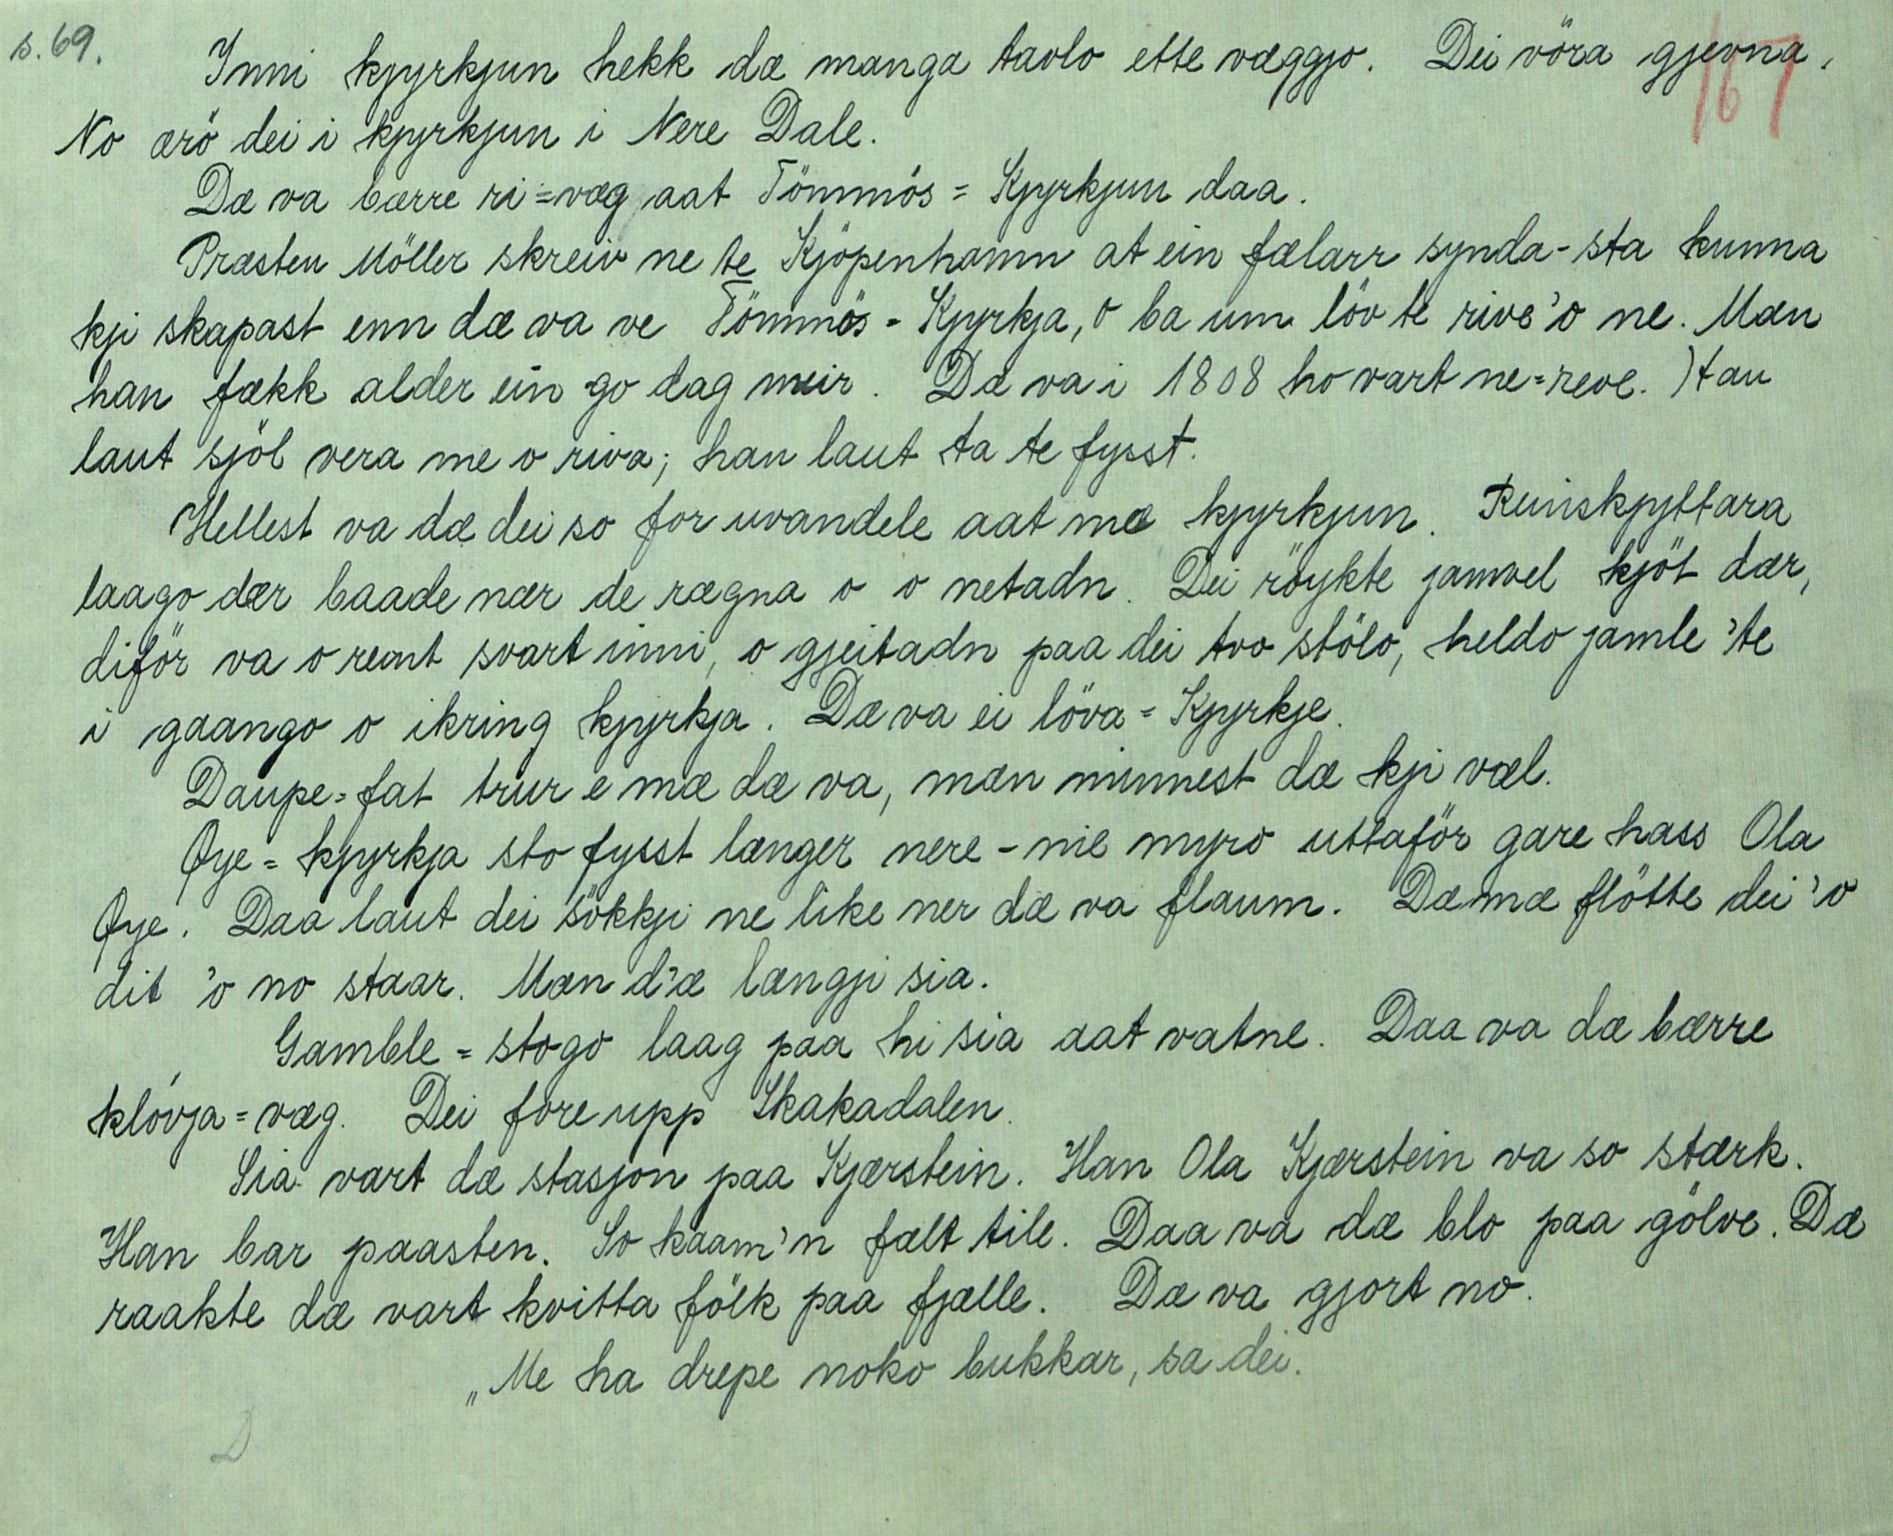 s. 69.
167
Inni kjyrkjun hekk dæ manga tavlo ette væggjo. Dei vöra gjevna.
No ærö dei i kjyrkjun i Nere Dale.
Dæ va bærre ri=væg aat Tömmös=Kjyrkjun daa.
Præsten Möller skreiv ne te Kjöpenhamn at ein fælarr synda-sta kunna
kji skapast enn dæ va ve Tömmös-Kjyrkja, o ba um löv te rive 'o ne. Mæn
han fækk alder ein go dag meir. Dæ va i 1808 ho vart ne=reve. Han
laut sjöl vera me o riva; han laut ta te fysst.
Hellest va dæ dei so for uvandele aat mæ kjyrkjun. Reinskjyttara
laago dær baade nær de rægna o o netadn. Dei röykte jamvel kjöt dær,
diför va o reint svart inni, o gjeitadn paa dei tvo stölo, heldo jamle 'te
i gaango o ikring kjyrkja. Dæ va ei löva=Kjyrkje.
Daupe=fat trur e mæ dæ va, mæn minnest dæ kji væl.
Øye=kjyrkja sto fysst længer nere-me myro uttaför gare hass Ola
Øye. Daa laut dei sökkji ne like ner dæ va flaum. Dæmæ flötte dei 'o
dit 'o no staar. Mæn d'æ længji sia.
Gamble=stogo laag paa hi sia aat vatne. Daa va dæ bærre
klóvja=væg. Dei fore upp Skakadalen.
Sia vart dæ stasjon paa Kjærstein. Han Ola Kjærstein va so stærk.
Han bar paasten. So kaam'n fælt tile. Daa va dæ blo paa gölve. Dæ
raakte dæ vart kvitta fölk paa fjælle. Dæ va gjort no.
„Me ha drepe noko bukkar, sa dei.
D